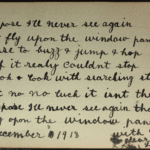 pose I'll never see again
fly upon the window pan
se to buzz & jump & hop
if it really couldnt stop
ook & look with searching st
t no no luck it isnt the
pose I'll never see again tha
g upon the window pan
ecember 8 1913
with